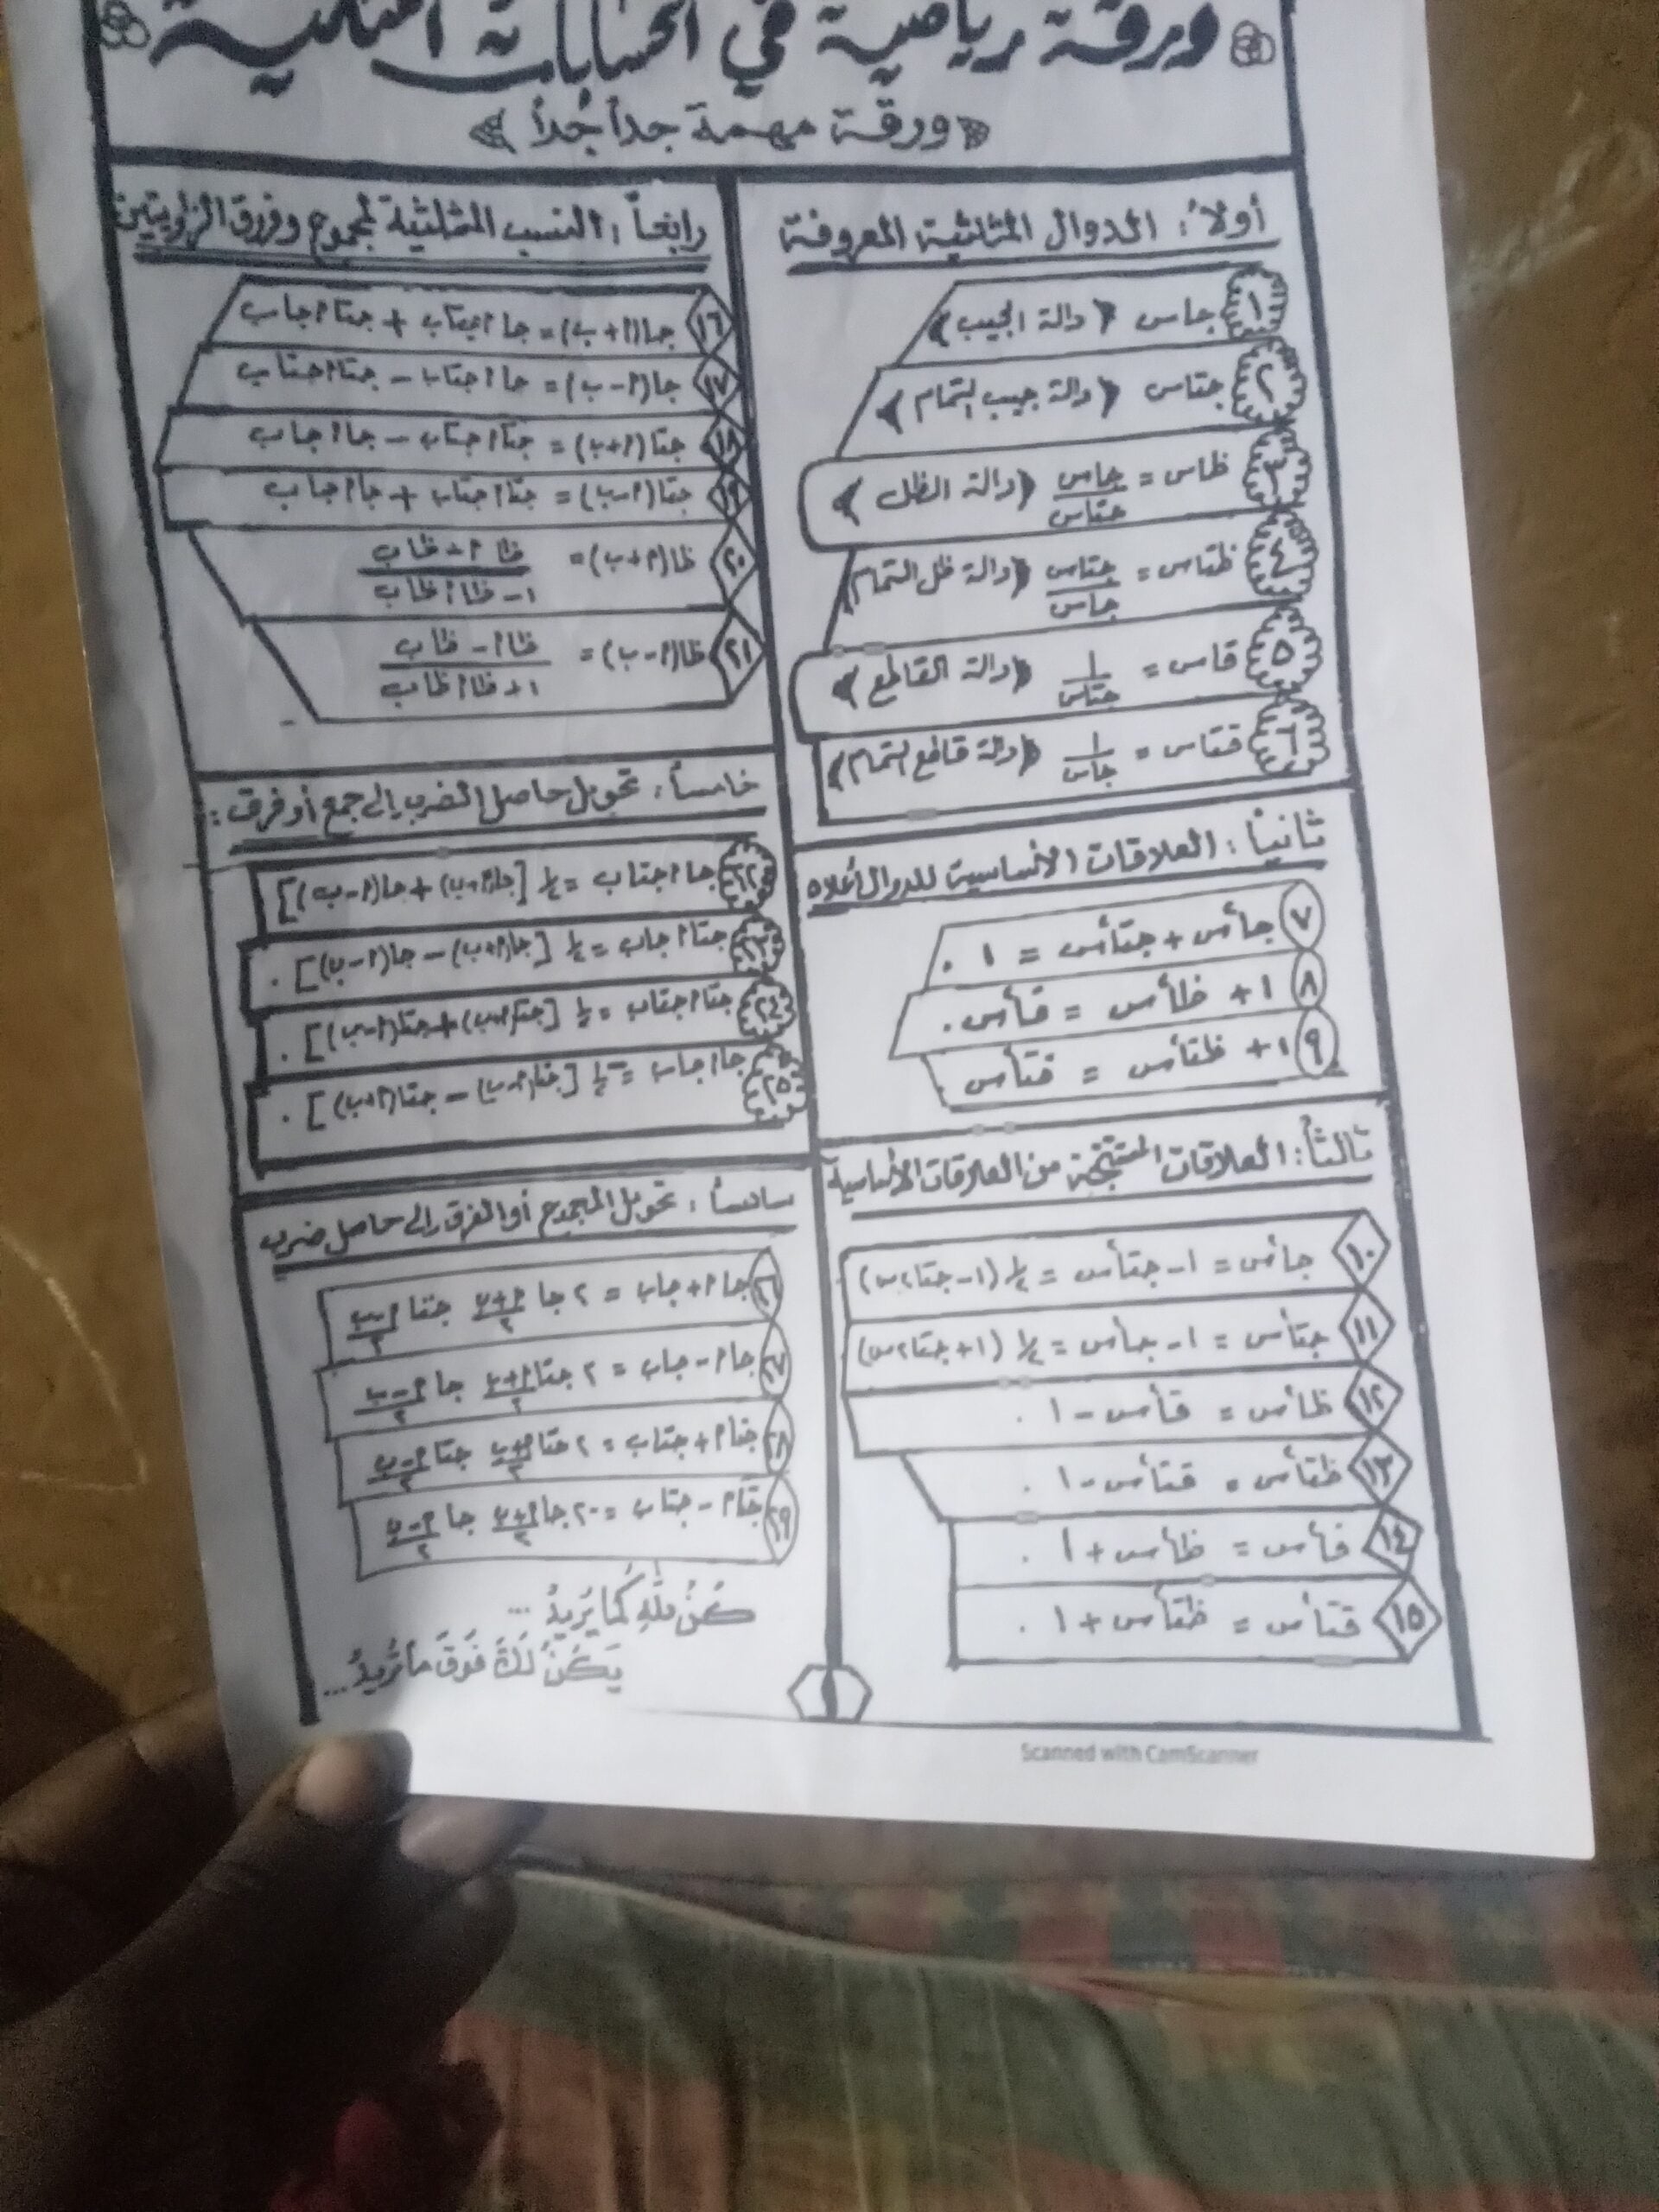 ورقة رياضية في الحسابات المثلثية
ورقة مهمة جداً جُداً
أولاً : الدوال المثلثية المعروفة
١ جاس (دالة الجيب)
٢ جتاس (دالة جيب التمام)
٣ ظاس = جاس/جتاس (دالة الظل)
٤ ظتاس = جتاس/جاس (دالة ظل التمام)
٥ قاس = ١/جتاس (دالة القاطع)
٦ قتاس = ١/جاس (دالة قاطع التمام)
ثانياً : العلاقات الأساسية للدوال أعلاه
٧ جا²س + جتا²س = ١ .
٨ ١ + ظا²س = قا²س .
٩ ١ + ظتا²س = قتا²س
ثالثاً : العلاقات المستنتجة من العلاقات الأساسية
١٠ جا²س = ١ - جتا²س = ½ (١ - جتا٢س)
١١ جتا²س = ١ - جا²س = ½ (١ + جتا٢س)
١٢ ظا²س = قا²س - ١ .
١٣ ظتا²س = قتا²س - ١ .
١٤ قا²س = ظا²س + ١ .
١٥ قتا²س = ظتا²س + ١ .
رابعاً : النسب المثلثية لمجموع وفرق الزاويتين
١٦ جا(أ+ب) = جا أ جتاب + جتا أ جاب
١٧ جا(أ-ب) = جا أ جتاب - جتا أ جتاب
١٨ جتا(أ+ب) = جتا أ جتاب - جا أ جاب
١٩ جتا(أ-ب) = جتا أ جتاب + جا أ جاب
٢٠ ظا(أ+ب) = ظا أ + ظاب/١ - ظا أ ظاب
٢١ ظا(أ-ب) = ظا أ - ظاب/١ + ظا أ ظاب
خامساً : تحويل حاصل الضرب إلى جمع أو فرق :
٢٢ جا أ جتاب = ½ [جا(أ+ب) + جا(أ-ب)]
٢٣ جتا أ جاب = ½ [جا(أ+ب) - جا(أ-ب)] .
٢٤ جتا أ جتاب = ½ [جتا(أ+ب) + جتا(أ-ب)] .
٢٥ جا أ جاب = ½ [جتا(أ-ب) - جتا(أ+ب)] .
سادساً : تحويل المجموع أو الفرق إلى حاصل ضرب
٢٦ جا أ + جاب = ٢ جا أ+ب/٢ جتا أ-ب/٢
٢٧ جا أ - جاب = ٢ جتا أ+ب/٢ جا أ-ب/٢
٢٨ جتا أ + جتاب = ٢ جتا أ+ب/٢ جتا أ-ب/٢
٢٩ جتا أ - جتاب = -٢ جا أ+ب/٢ جا أ-ب/٢
كُنْ للهِ كَمَا يُرِيدُ ...
يَكُنْ لَكَ فَوْقَ مَا تُرِيدُ ...
Scanned with CamScanner